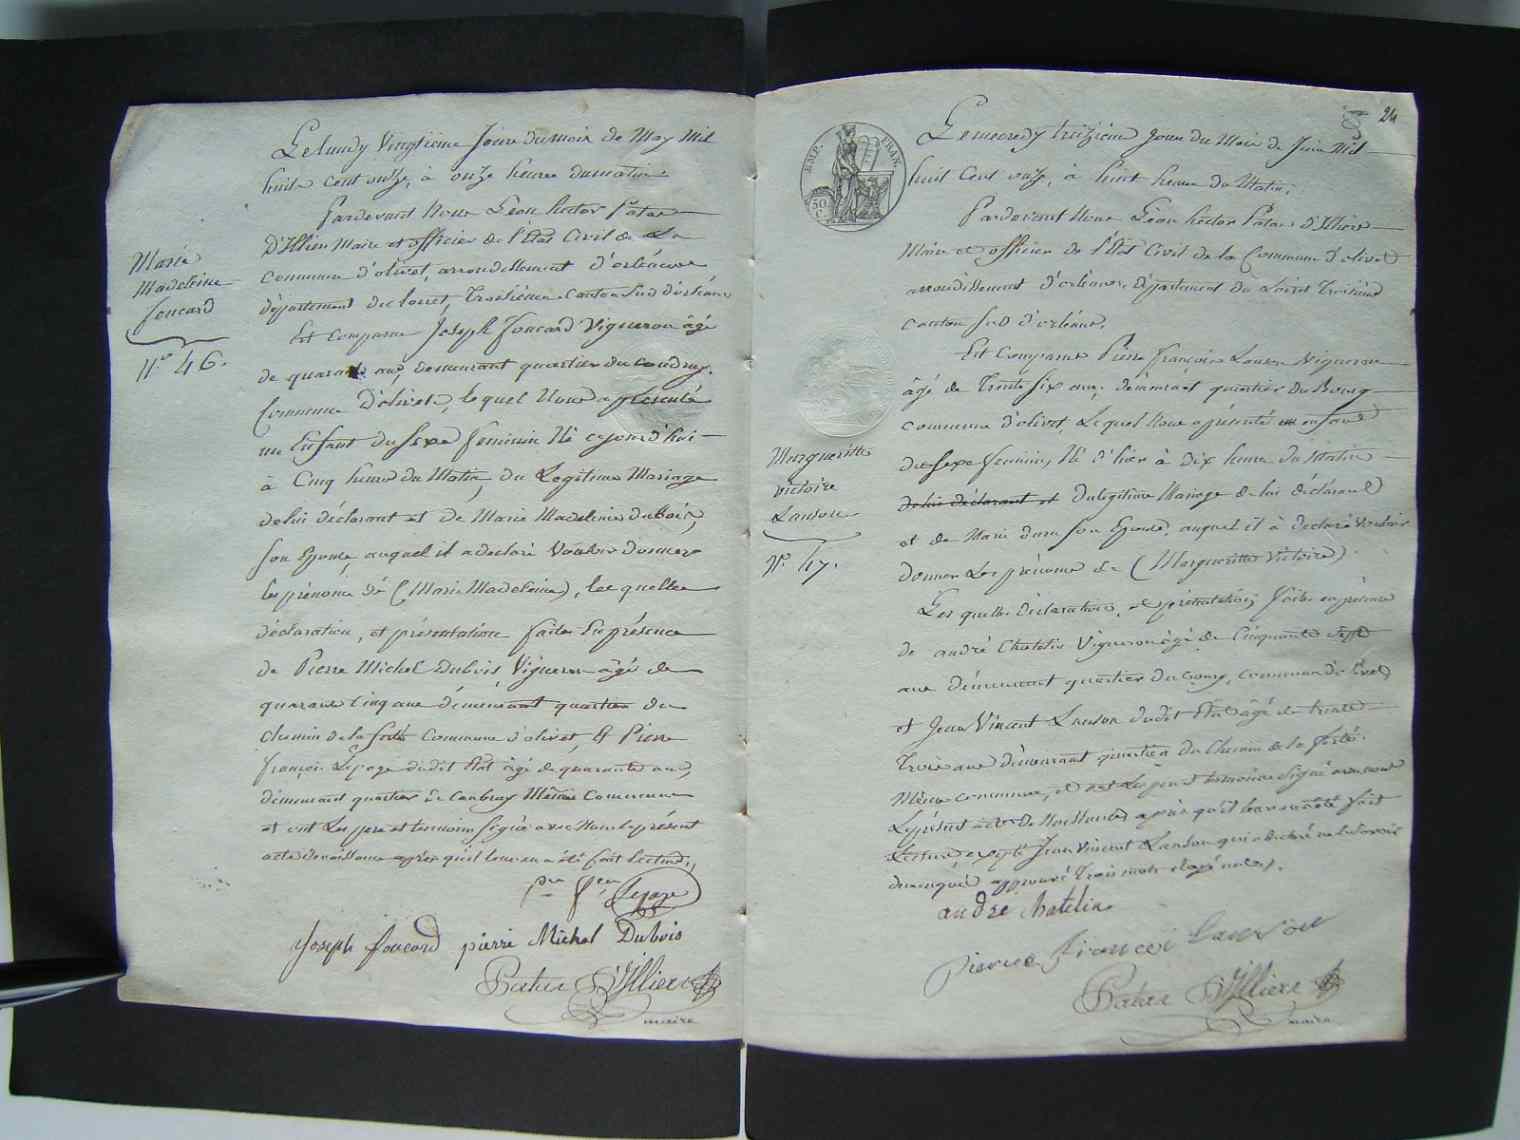 Marie
Madeleine
foucard
N.° 46.
Le lundy Vingtième Jour du mois de May Mil
huit cent onze, à onze heures du matin
Pardevant Nous Léon hector Patas
D'Illiers Maire et officier de l'Etat Civil de La
Commune d'olivet, arrondissement d'orléans
département du loiret, troisième Canton sud d'orléans
Est Comparu Joseph foucard Vigneron âgé
de quarante ans, demeurant quartier du coudray.
Commune D'olivet, lequel Nous a présenté
un Enfant du Sexe feminin Né cejourd'hui
à Cinq heures du Matin, du Legitime Mariage
de lui déclarant et de Marie Madeleine dubois,
son Epouse, auquel il a declaré Vouloir donner
les prénoms de (Marie Madeleine), les quelles
déclaration, et présentation faites En présence
de Pierre Michel Dubois Vigneron âgé de
quarante cinq ans demeurant quartier du
chemin de la ferté Commune d'olivet, Et Pierre
françois Lepage dudit Etat âgé de quarante ans,
demeurant quartier de Couasnon Même Commune
et ont Les pere et temoins signé avec Nous le présent
acte de naissance après qu'il leur en a été fait Lecture.,
Lepage
Joseph foucard pierre Michel Dubois
Patas D'Illiers
maire
24
EMP. FRAN.
50
C.
Margueritte
victoire
Lanson
N.° 47.
Le mecredy treizième Jour du Mois de Juin Mil
huit Cent onze, à huit heures du Matin.
Pardevant Nous Léon hector Patas d'Illiers
Maire et officier de l'Etat Civil de la Commune d'olivet
arrondissement d'orléans, département du Loiret Troisième
Canton sud d'orléans.
Est Comparu Pierre françois Lanson Vigneron
âgé de Trente six ans, demeurant quartier du Bourg
commune d'olivet, Lequel Nous a présenté un enfant
du Sexe feminin, Né d'hier à dix heures du Matin
de lui déclarant et du legitime Mariage de lui déclarant
et de Marie son Epouse, auquel il à declaré Vouloir
donner Les prénoms de (Margueritte Victoire).
Les quelles déclaration, et présentation, faites en présence
de andré Chatelin Vigneron âgé de Cinquante sept
ans demeurant quartier du bourg, commune d'olivet
et Jean Vincent Lanson dudit Etat âgé de trente
Trois ans demeurant quartier du Chemin de la ferté.
Même commune, et ont Les pere et temoins signé avec nous
Le présent acte de Naissance après qu'il leur en a été fait
Lecture, excepté Jean Vincent Lanson qui a declaré ne le savoir
de ce enquis approuvé trois mots rayés nuls.
andré Chatelin
pierre francoi Lanson
Patas D'Illiers
maire